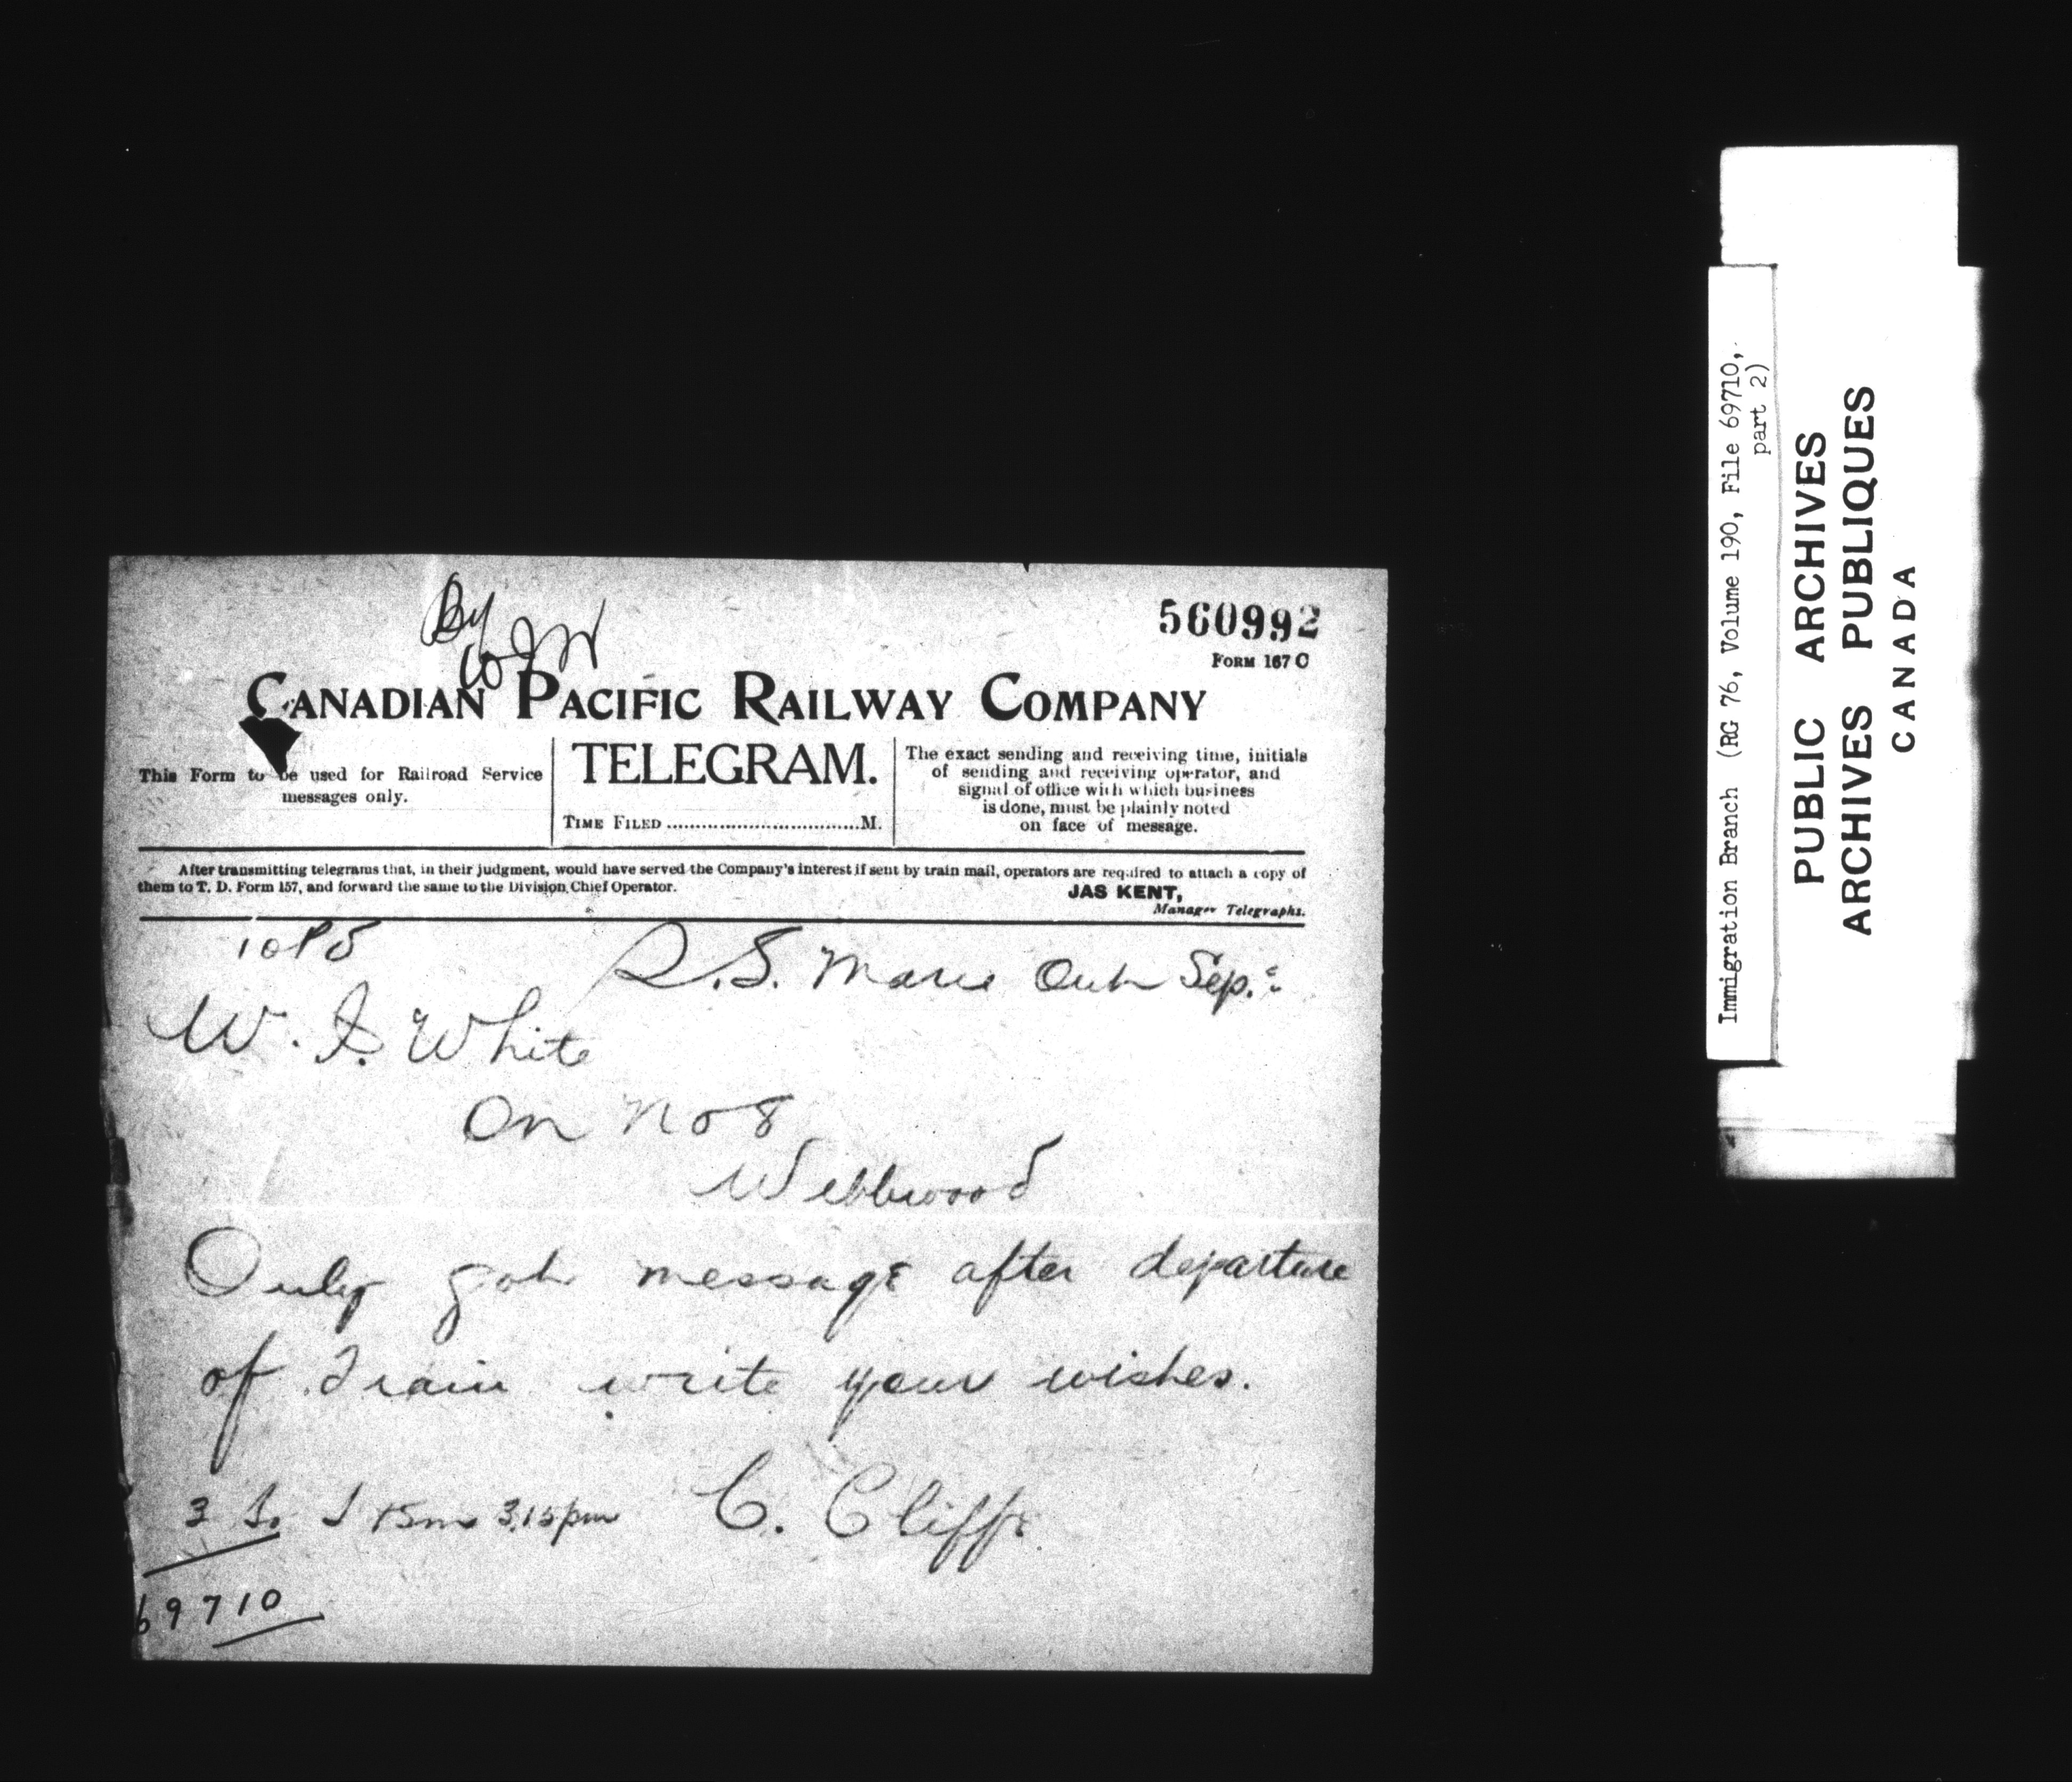 By
560992
FORM 167 C
CANADIAN PACIFIC RAILWAY COMPANY
This Form to be used for Railroad Service
messages only.
TELEGRAM.
TIME FILED ..................................M.
The exact sending and receiving time, initials
of sending and receiving operator, and
signal of office with which business
is done, must be plainly noted
on face of message.
After transmitting telegrams that, in their judgment, would have served the Company's interest if sent by train mail, operators are required to attach a copy of
them to T. D. Form 157, and forward the same to the Division Chief Operator.
JAS KENT,
Manager Telegraphs.
S.S. Marie Ont Sep.
W. J. White
On No 8
Webbwood
Only got message after departure
of Train write your wishes.
3 3.15pm C. Cliffe
69710
Immigration Branch (RG 76, Volume 190, File 69710,
part 2)
PUBLIC ARCHIVES
ARCHIVES PUBLIQUES
CANADA